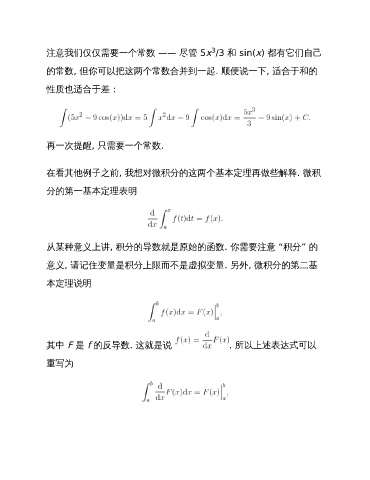 注意我们仅仅需要一个常数 —— 尽管 5x³/3 和 sin(x) 都有它们自己
的常数, 但你可以把这两个常数合并到一起. 顺便说一下, 适合于和的
性质也适合于差：
∫(5x² − 9 cos(x))dx = 5 ∫ x²dx − 9 ∫ cos(x)dx = 5x³/3 − 9 sin(x) + C.
再一次提醒, 只需要一个常数.
在看其他例子之前, 我想对微积分的这两个基本定理再做些解释. 微积
分的第一基本定理表明
d/dx ∫ₐˣ f(t)dt = f(x).
从某种意义上讲, 积分的导数就是原始的函数. 你需要注意 “积分” 的
意义, 请记住变量是积分上限而不是虚拟变量. 另外, 微积分的第二基
本定理说明
∫ₐᵇ f(x)dx = F(x)|ₐᵇ,
其中 F 是 f 的反导数. 这就是说 f(x) = d/dx F(x). 所以上述表达式可以
重写为
∫ₐᵇ d/dx F(x)dx = F(x)|ₐᵇ.